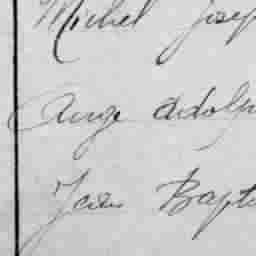 Michel Josep
Ange Adolp
Jean Bapt